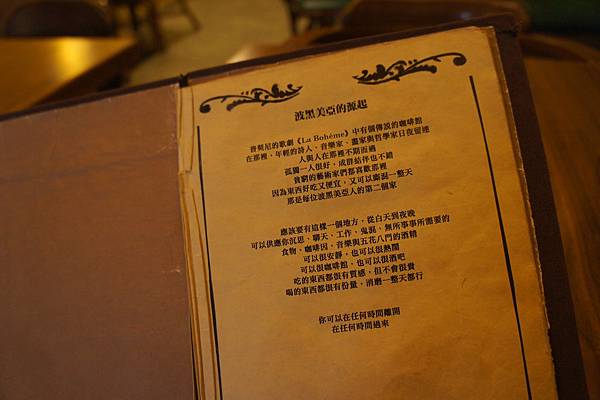 波黑美亞的源起
普契尼的歌劇《La Bohème》中有個傳說的咖啡館
在那裡，年輕的詩人、音樂家、畫家與哲學家日夜留連
人與人在那裡不期而遇
孤獨一人很好，成群結伴也不錯
貧窮的藝術家們都喜歡那裡
因為東西好吃又便宜，又可以廝混一整天
那是每位波黑美亞人的第二個家
應該要有這樣一個地方，從白天到夜晚
可以供應你沉思、聊天、工作、鬼混、無所事事所需要的
食物、咖啡因、音樂與五花八門的酒精
可以很安靜，也可以很熱鬧
可以很咖啡館，也可以很酒吧
吃的東西都很有質感，但不會很貴
喝的東西都很有份量，消磨一整天都行
你可以在任何時間離開
在任何時間過來